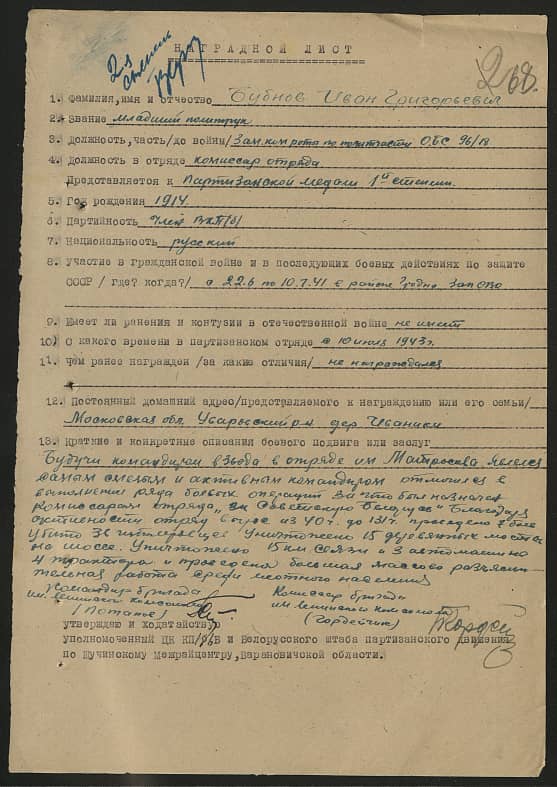 2я
степень
268.
НАГРАДНОЙ ЛИСТ
1. Фамилия,имя и отчество Бубнов Иван Григорьевич
2. Звание младший политрук
3. Должность,часть/до войны/ Зам.ком.роты по политчасти ОБС 96/18
4. Должность в отряде комиссар отряда
Представляется к Партизанской медали 1й степени.
5. Год рождения 1914
6. Партийность Член ВКП/б/
7. Национальность русский
8. Участие в гражданской войне и в последующих боевых действиях по защите
СССР / где? когда?/ с 22.6 по 10.7.41 в районе Гродно
9. Имеет ли ранения и контузии в отечественной войне не имеет
10. С какого времени в партизанском отряде с 10 июля 1943г.
11. Чем ранее награжден /за какие отличия/ не награждался
12. Постоянный домашний адрес/представляемого к награждению или его семьи/
Московская обл. Уваровский р-н дер. Иваники
13. Краткие и конкретные описания боевого подвига или заслуг
Будучи командиром взвода в отряде им Матросова явился
самым смелым и активным командиром отличился в
выполнении ряда боевых операций За что был назначен
комиссаром отряда „За Советскую Беларусь" Благодаря
активности отряд вырос из 40 г. до 131 г. проведено 7 боев
убито 38 Уничтожено 15 деревянных мостов
на шоссе. Уничтожено 15 км связи и 3 автомашины
4 трактора и проведена большая массово разъясни-
тельная работа среди местного населения
Командир бригады
им. Ленинского комсомола
/Потапов/
Комиссар бригады
им Ленинского комсомола
(Гордейчик)
утверждаю и ходатайствую
уполномоченный ЦК КП/б/Б и Белорусского штаба партизанского движения
по Щучинскому Межрайцентру,Барановичской области.